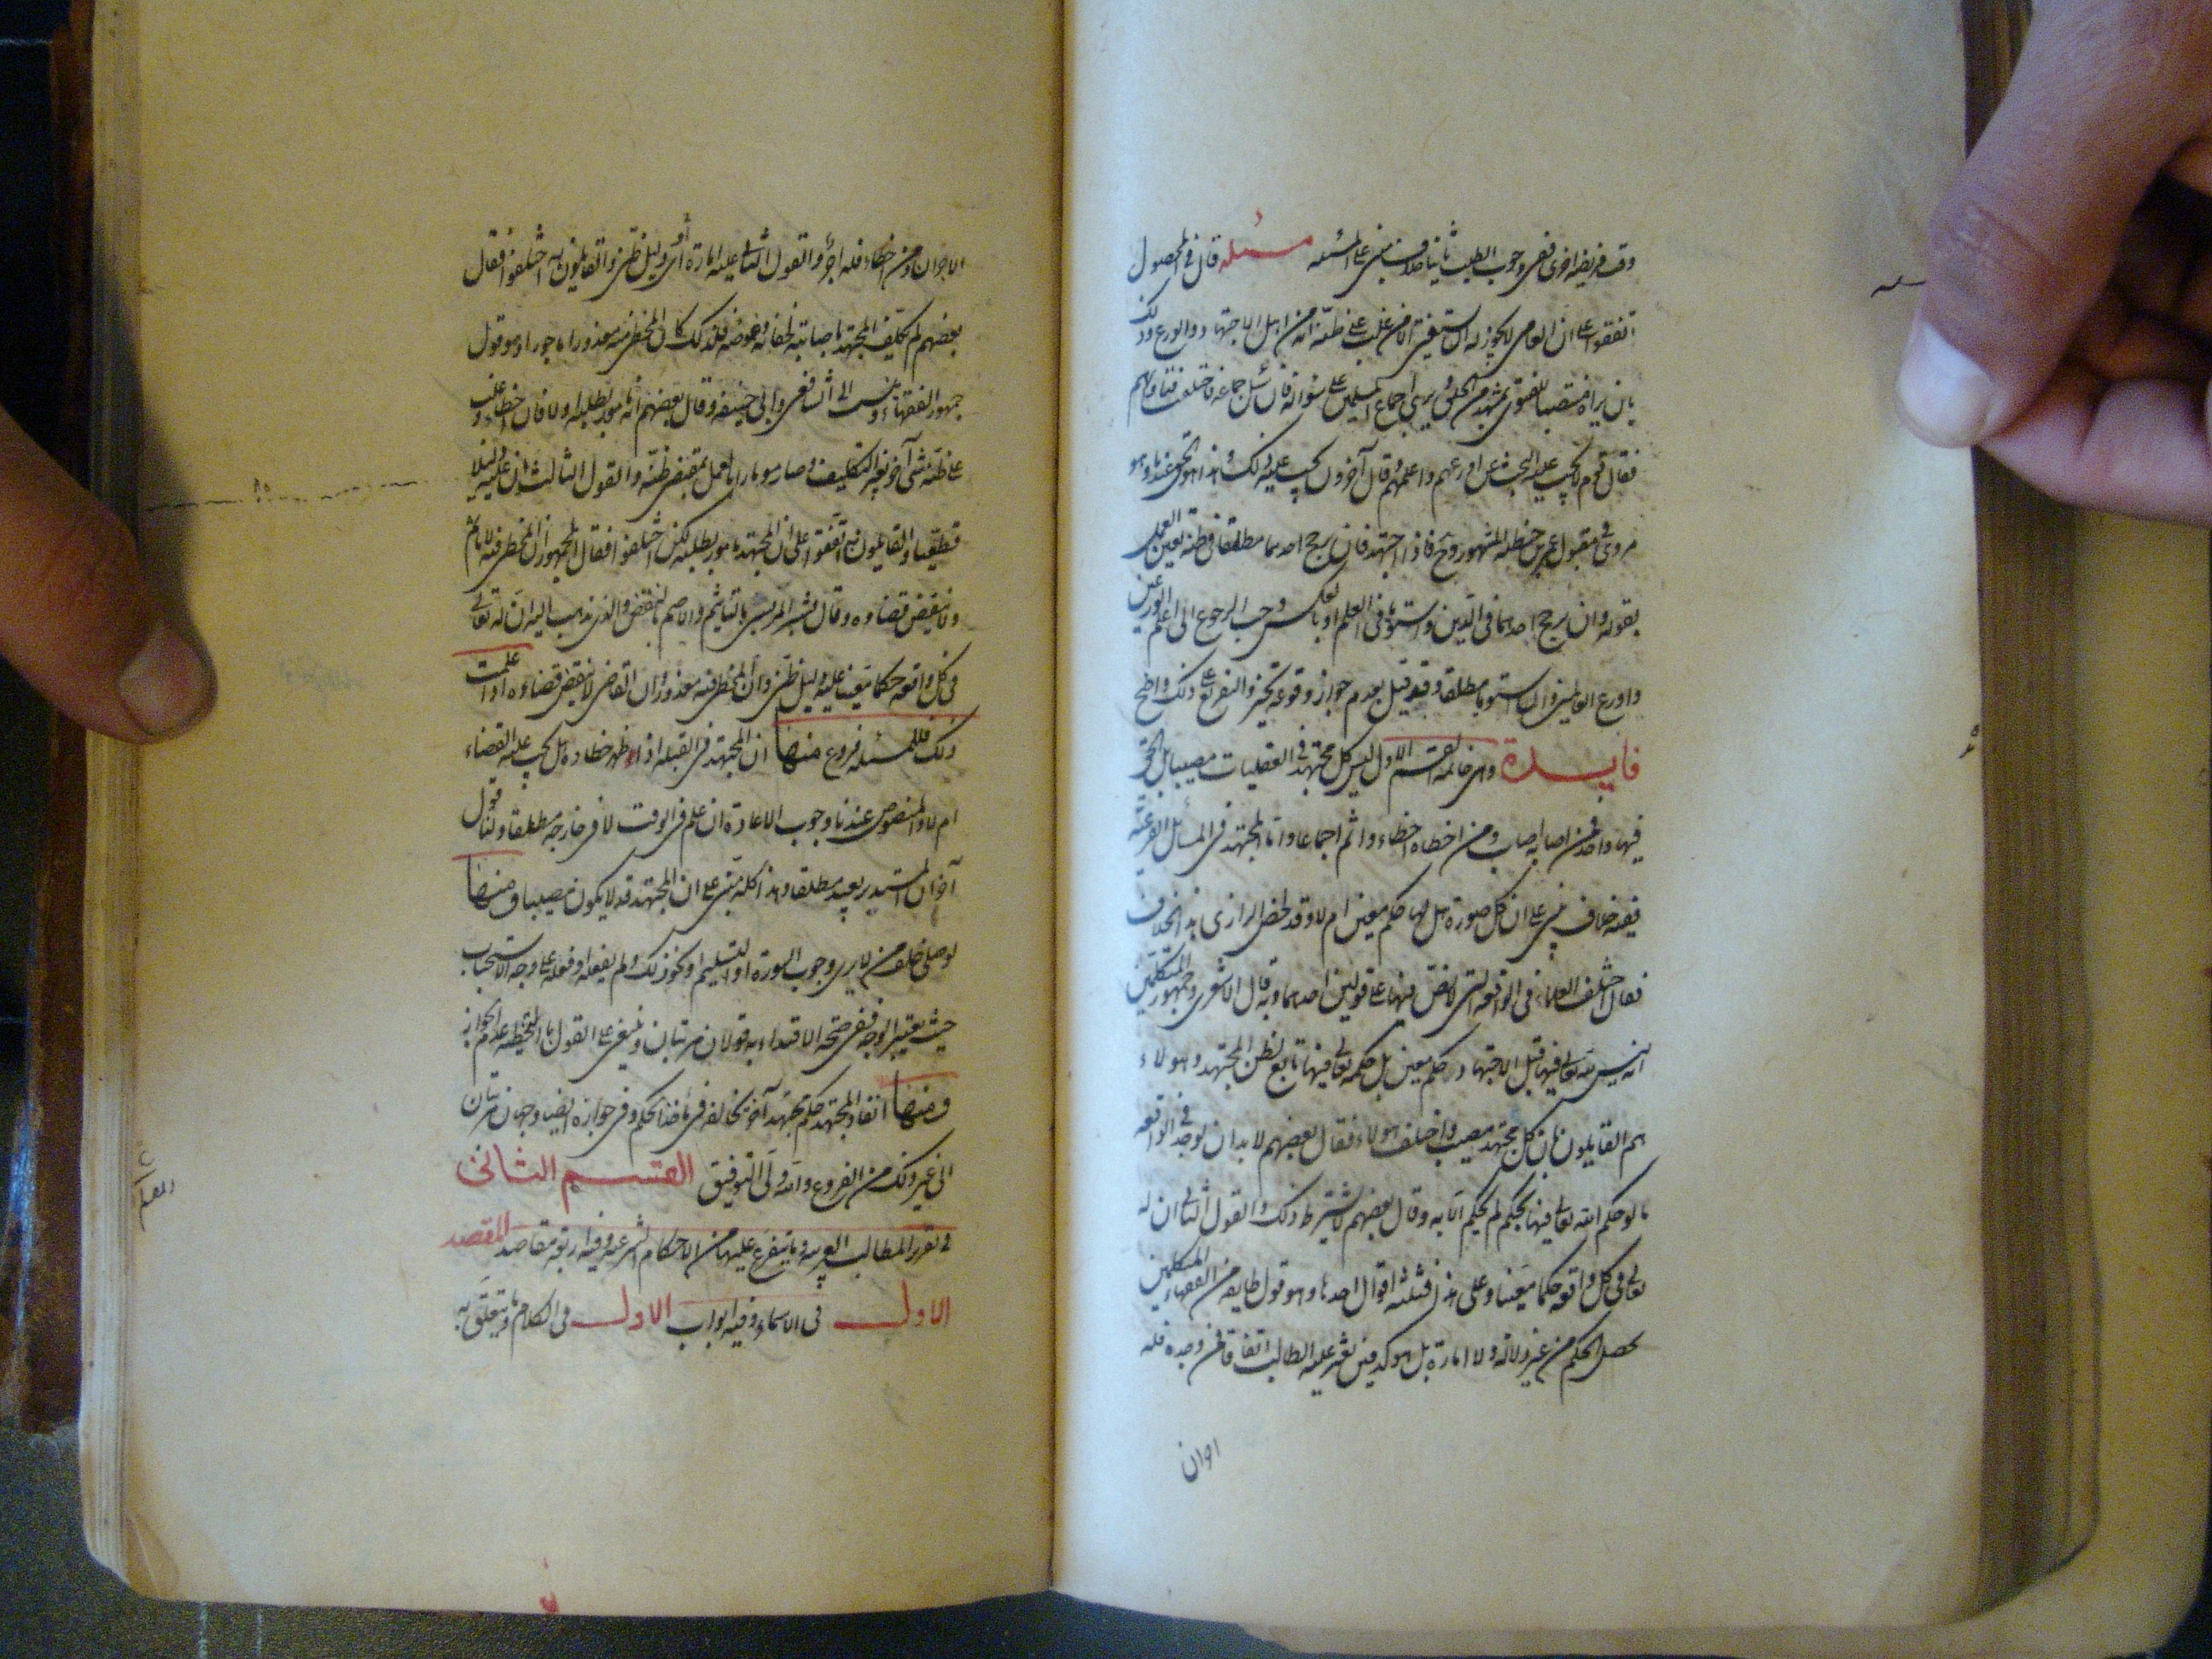 وقت فريضة اخرى ففي وجوب الطلب ثانيا خلاف مبني على المسئلة مسئله قال في المحصول
اتفقوا على ان العامي لا يجوز له ان يستفتي الا من غلب على ظنه انه من اهل الاجتهاد والورع وذلك
بان يراه منتصبا للفتوى بمشهد من الخلق ويرى اجماع المسلمين على سؤاله فان سئل جماعة فاختلفت فتاويهم
فقال قوم لا يجب عليه البحث عن اورعهم واعلمهم وقال آخرون يجب عليه ذلك وهذا هو الحق عندنا وهو
مروي في مقبول عمر بن حنظلة المشهور ونحوه فاذا اجتهد فان ترجح احدهما مطلقا في ظنه تعين العمل
بقوله وان ترجح احدهما في الدين واستويا في العلم او بالعكس وجب الرجوع الى اعلم الورعين
واورع العالمين وان استويا مطلقا فقد قيل بعدم جواز وقوعه تخير والتفريع على ذلك واضح
فايدة وهي خاتمة القسم الاول ليس كل مجتهد في العقليات مصيبا بل الحق
فيها واحد فمن اصابه اصاب ومن اخطاه اخطاء واثم اجماعا واما المجتهد في المسائل الفرعية
ففيه خلاف مبني على ان كل صورة هل لها حكم معين ام لا وقد لخص الرازي هذا الخلاف
فقال اختلف العلماء في الواقعة التي لا نص فيها على قولين احدهما وبه قال الاشعري وجمهور المتكلمين
انه ليس لله تعالى فيها قبل الاجتهاد حكم معين بل حكمه تعالى فيها تابع لظن المجتهد وهولاء
هم القايلون بان كل مجتهد مصيب واختلف هولاء فقال بعضهم لا بد ان يوجد في الواقعة
ما لو حكم الله تعالى فيها بحكم لم يحكم الا به وقال بعضهم لا يشترط ذلك والقول الثاني ان له
تعالى في كل واقعة حكما معينا وعلى هذا فثلثة اقوال احدها وهو قول طايفة من الفقهاء المتكلمين
يحصل الحكم من غير دلالة ولا امارة بل هو كدفين يعثر عليه الطالب اتفاقا فمن وجده فله
اجران
الاجران ومن اخطاء فله اجر والقول الثاني عليه امارة اى دليل ظني والقايلون به اختلفوا فقال
بعضهم لم يكلف المجتهد باصابته لخفائه وغموضه فلذلك كان المخطي فيه معذورا ماجورا وهو قول
جمهور الفقهاء وينسب الى الشافعي وابي حنيفة وقال بعضهم انه مامور بطلبه اولا فان اخطاء وغلب
على ظنه شي آخر تغير التكليف وصار مامورا بالعمل بمقتضى ظنه والقول الثالث ان عليه دليلا
قطعيا والقايلون به اتفقوا على ان المجتهد مامور بطلبه لكن اختلفوا فقال الجمهور ان المخطي فيه لا ياثم
ولا ينقض قضاوه وقال بشر المريسي بالتاثيم والاصم بالنقض والذي نذهب اليه ان لله تعالى
في كل واقعة حكما معينا عليه دليل ظني وان المخطي فيه معذور وان القاضي لا ينقض قضاوه اذا علمت
ذلك فللمسئلة فروع منها ان المجتهد في القبلة اذا ظهر خطاوه هل يجب عليه القضاء
ام لا والمنصوص عندنا وجوب الاعادة ان علم في الوقت لا في خارجه مطلقا ولنا قول
آخر ان المستدبر يعيد مطلقا وهذا كله مبني على ان المجتهد قد لا يكون مصيبا ومنها
لو صلى خلف من لا يرى وجوب السورة او التسليم او نحو ذلك ولم يفعله او فعله على وجه الاستحباب
حيث يعتبر الوجه ففي صحة الاقتداء به قولان مرتبان وينبغي على القول بالتخطئة عدم الجواز
ومنها انفاذ المجتهد حكم مجتهد آخر يخالفه في ماخذ الحكم وفي جوازه ايضا وجهان مرتبان
الى غير ذلك من الفروع والله ولي التوفيق القسم الثاني
في تقرير المطالب العربية وما يتفرع عليها من الاحكام الشرعية وفيه اربعة مقاصد المقصد
الاول في الاسماء وفيه ابواب الاول في الكلام وما يتعلق به